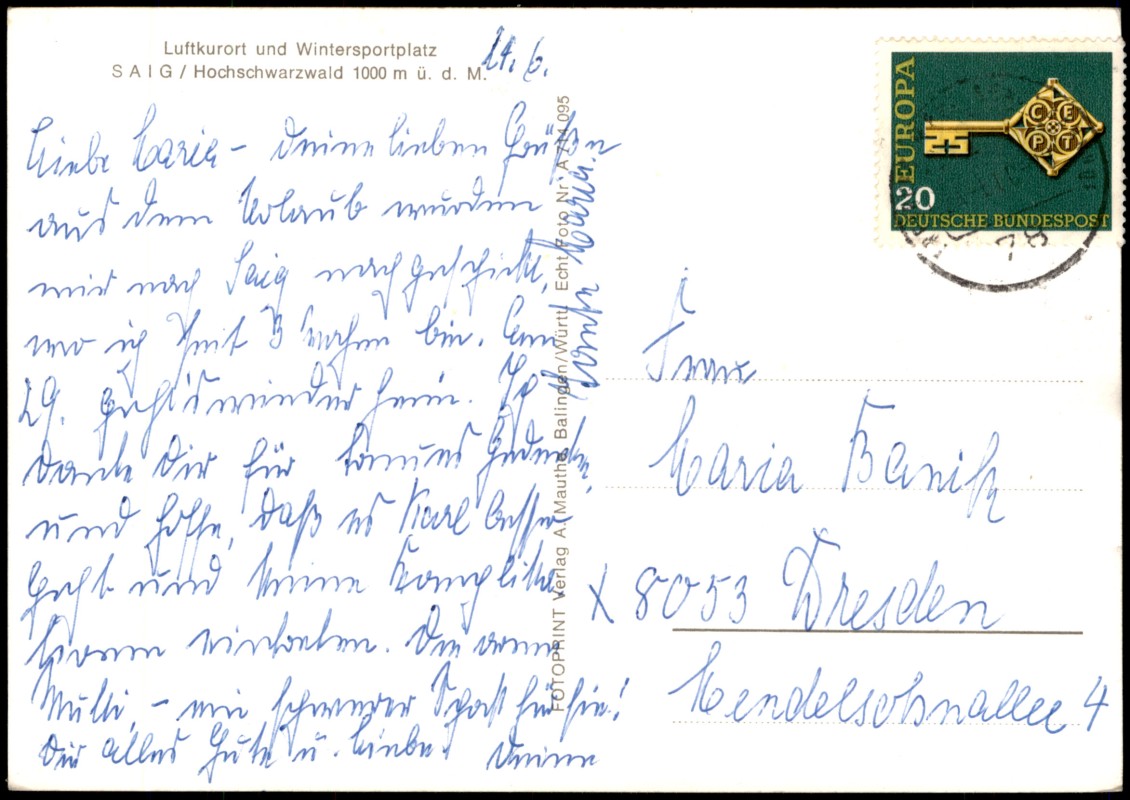 Luftkurort und Wintersportplatz
SAIG / Hochschwarzwald 1000 m ü. d. M.
Liebe Maria – Deine lieben Grüße
aus dem Urlaub wurden
mir nach Saig nachgeschickt,
wo ich seit 3 Wochen bin. Am
29. geht's wieder heim. Ich
danke Dir für Deines Gedenken,
und hoffe, daß es Karl besser
geht und keine Komplika-
tionen eintreten. Die arme
Mutti, – ein schwerer für sie!
Dir alles Gute u. Liebe. Deine
Maria.
FOTOPRINT Verlag A. Mauthe, Balingen/Württ. Echt Foto Nr. A 714 095
EUROPA
CEPT
20
DEUTSCHE BUNDESPOST
78
Frau
Maria
X 8053 Dresden
Mendelsohnallee 4